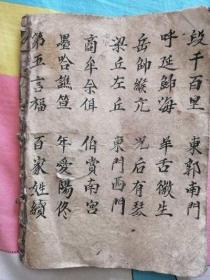 段千百里 東郭南門
呼延歸海 羊舌徵生
岳帥緱亢 况后有琴
梁丘左丘 東門西門
商牟佘佴 伯賞南宮
墨哈譙笪 年愛陽佟
第五言福 百家姓續